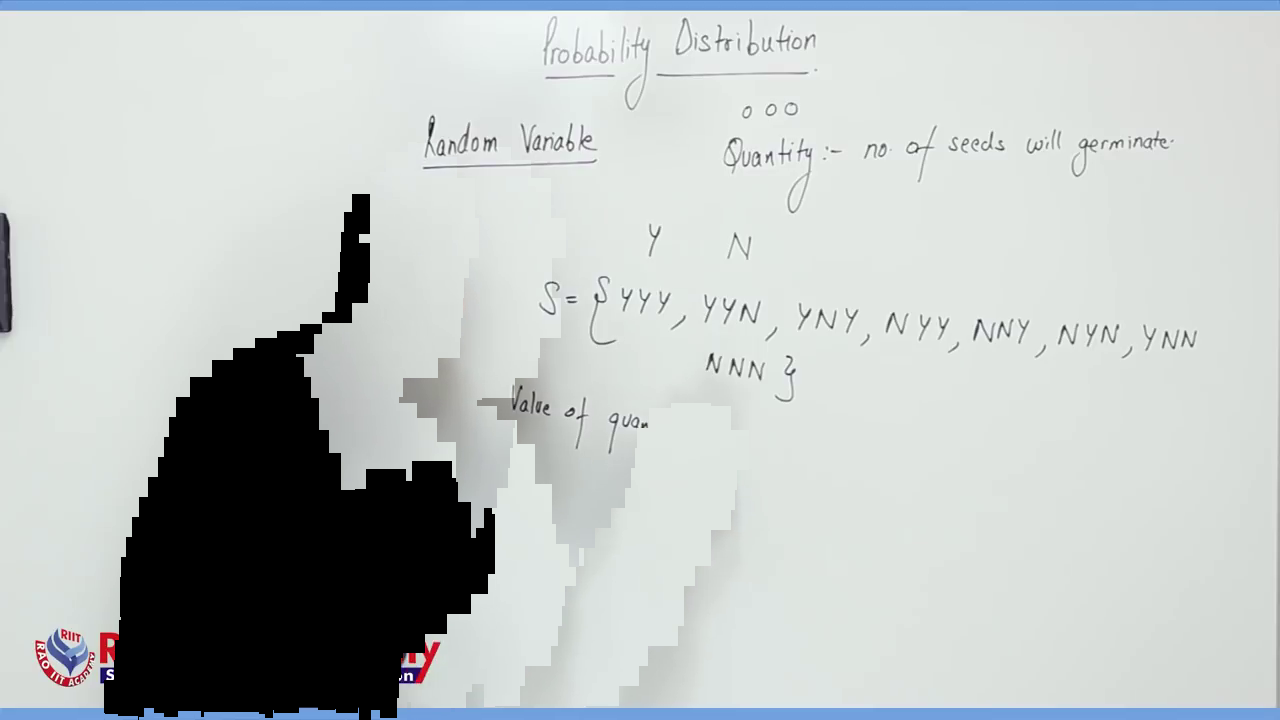 Probability Distribution
Random Variable
o o o
Quantity :- no. of seeds will germinate.
Y N
S = { YYY, YYN, YNY, NYY, NNY, NYN, YNN
NNN }
Value of
RIIT
RAO IIT ACADEMY